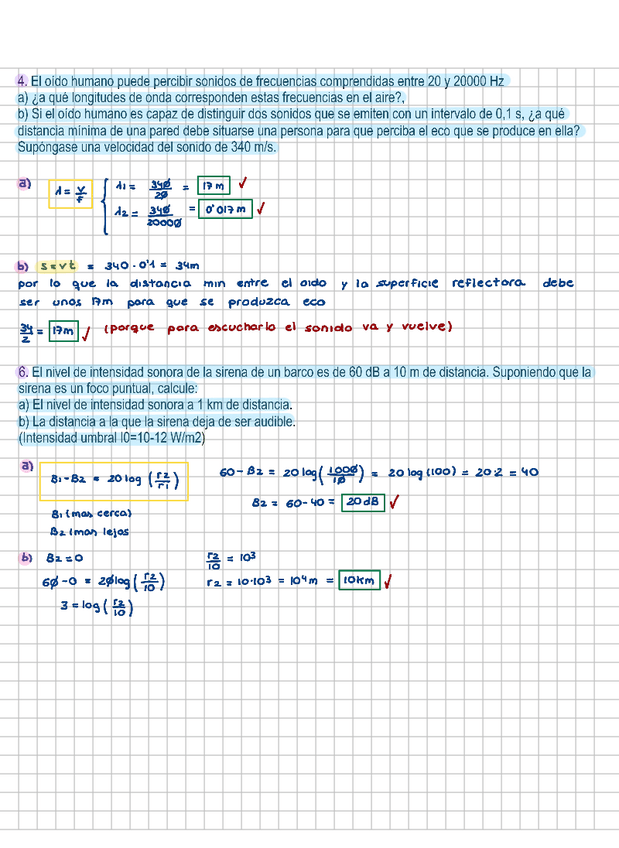 4. El oído humano puede percibir sonidos de frecuencias comprendidas entre 20 y 20000 Hz
a) ¿a qué longitudes de onda corresponden estas frecuencias en el aire?,
b) Si el oído humano es capaz de distinguir dos sonidos que se emiten con un intervalo de 0,1 s, ¿a qué
distancia mínima de una pared debe situarse una persona para que perciba el eco que se produce en ella?
Supóngase una velocidad del sonido de 340 m/s.
a) λ = v/f { λ1 = 340/20 = 17 m ✓
λ2 = 340/20000 = 0'017 m ✓
b) s = vt = 340 · 0'1 = 34m
por lo que la distancia min entre el oido y la superficie reflectora debe
ser unos 17m para que se produzca eco
34/2 = 17m ✓ (porque para escucharlo el sonido va y vuelve)
6. El nivel de intensidad sonora de la sirena de un barco es de 60 dB a 10 m de distancia. Suponiendo que la
sirena es un foco puntual, calcule:
a) El nivel de intensidad sonora a 1 km de distancia.
b) La distancia a la que la sirena deja de ser audible.
(Intensidad umbral I0=10-12 W/m2)
a) B1-B2 = 20 log (r2/r1) 60-B2 = 20 log (1000/10) = 20 log (100) = 20·2 = 40
B2 = 60-40 = 20 dB ✓
B1 (mas cerca)
B2 (mas lejos
b) B2 = 0 r2/10 = 10³
60-0 = 20log (r2/10) r2 = 10·10³ = 10⁴m = 10km ✓
3 = log (r2/10)